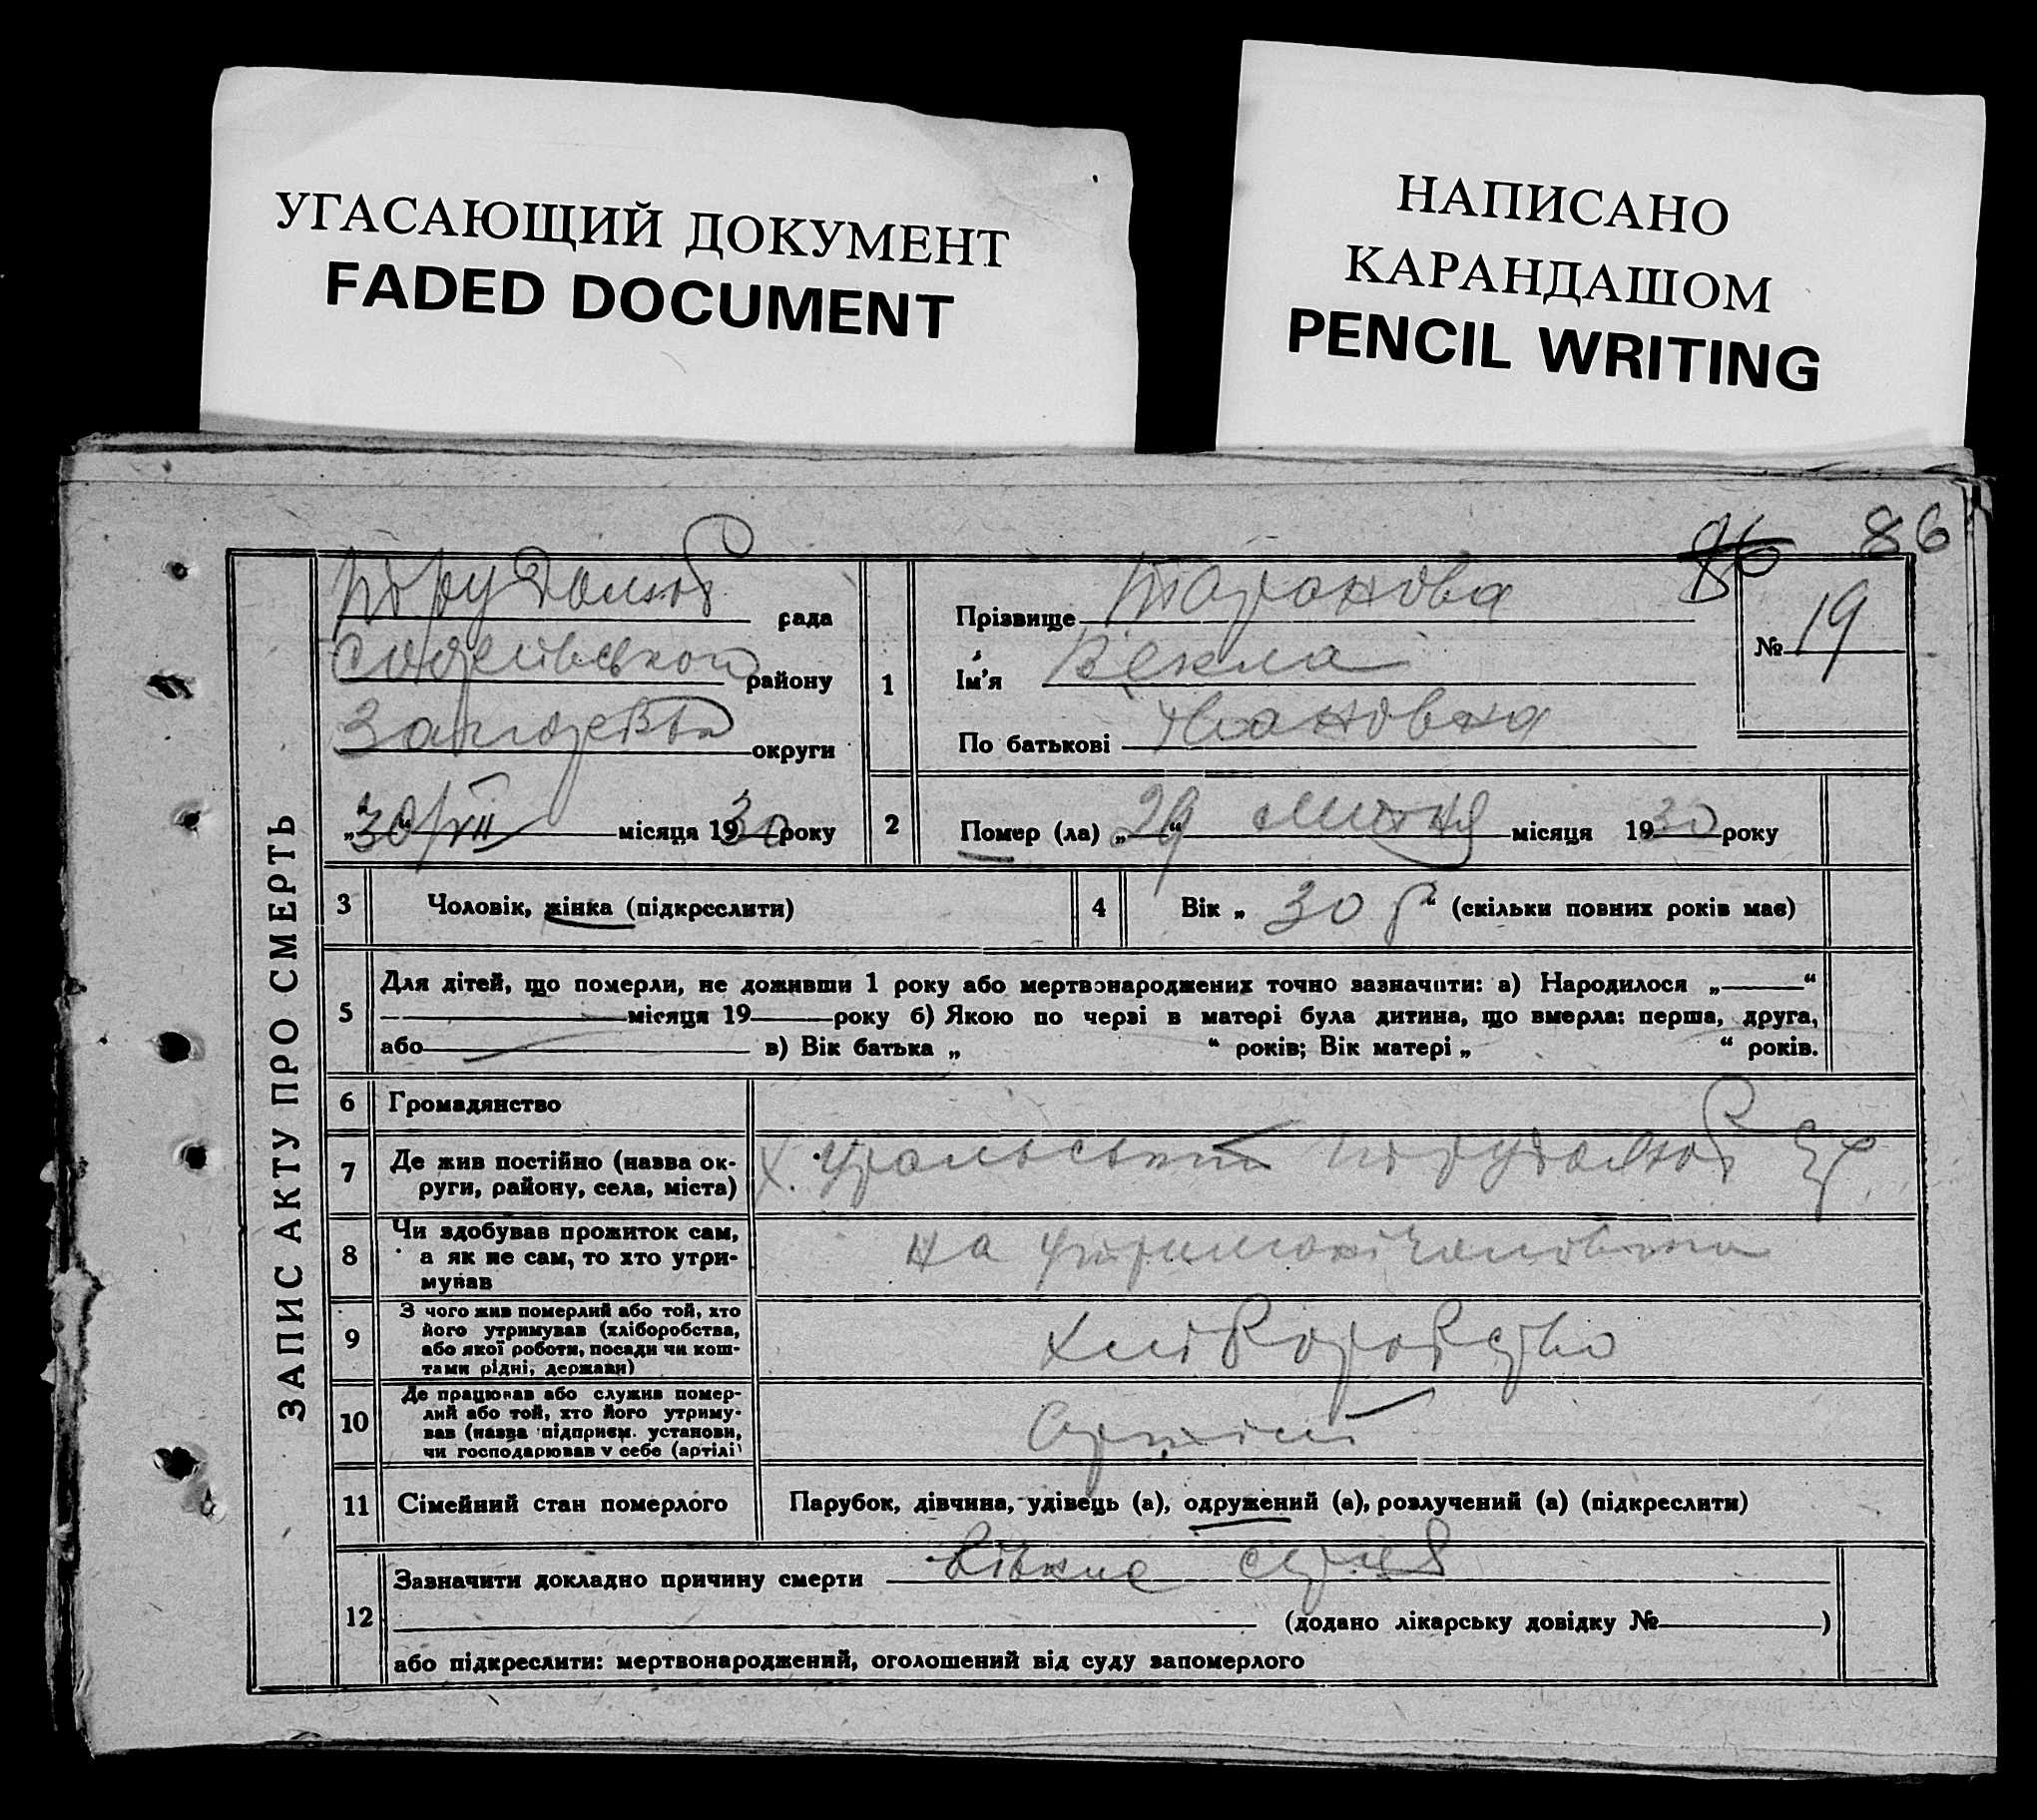 УГАСАЮЩИЙ ДОКУМЕНТ
FADED DOCUMENT
НАПИСАНО
КАРАНДАШОМ
PENCIL WRITING
86 86
ЗАПИС АКТУ ПРО СМЕРТЬ
рада
району
округи
„30“/VII місяця 1930 року
1
Прізвище Таранова
Ім'я Векла
По батькові Івановна
№ 19
2 Помер (ла) „29“ липня місяця 1930 року
3 Чоловік, жінка (підкреслити)
4 Вік „30 р“ (скільки повних років має)
5 Для дітей, що померли, не доживши 1 року або мертвонароджених точно зазначити: а) Народилося „ “
місяця 19 року б) Якою по черзі в матері була дитина, що вмерла: перша, друга,
або в) Вік батька „ “ років; Вік матері „ “ років.
6 Громадянство
7 Де жив постійно (назва ок-
руги, району, села, міста)
х. Уральський
8 Чи здобував прожиток сам,
а як не сам, то хто утри-
мував
на утримані чоловіка
9 З чого жив померлий або той, хто
його утримував (хліборобства,
або якої роботи, посади чи кош-
тами рідні, держави)
хліборобство
10 Де працював або служив помер-
лий або той, хто його утриму-
вав (назва підприєм. установи,
чи господарював у себе (артілі)
Артілі
11 Сімейний стан померлого Парубок, дівчина, удівець (а), одружений (а), розлучений (а) (підкреслити)
12 Зазначити докладно причину смерти
(додано лікарську довідку № )
або підкреслити: мертвонароджений, оголошений від суду запомерлого